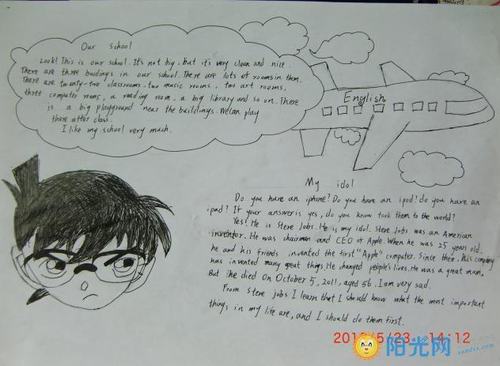 Our school
Look! This is our school. It's not big, but it's very clean and nice.
There are three buidings in our school. There are lots of rooms in them.
There are twenty-two classroom, two music rooms, two art rooms,
three computer rooms, a reading room, a big library and so on. There
is a big playground near the buildings. We can play
there after class.
I like my school very much.
English
My idol
Do you have an iphone? Do you have an ipod? do you have an
ipad? If your answer is yes, do you know took them to the world?
Yes! He is Steve Jobs. He is my idol. Steve Jobs was an American
inventors. He was chairman and CEO of Apple. When he was 25 years old,
he and his friends invented the first "Apple" computer. Since then, his company
has invented many great things. He changed people's lives. He was a great man.
But he died on October 5, 2011, aged 56. I am very sad.
From Steve Jobs I learn that I should know what the most important
things in my life are, and I should do them first.
14:12
阳光网